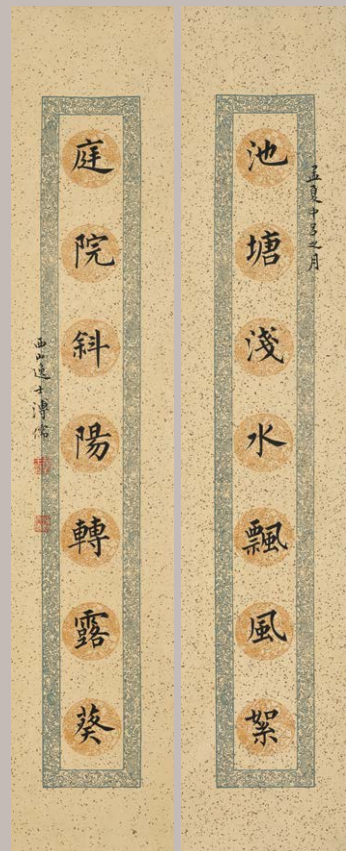 孟夏中呂之月
池塘淺水飄風絮
庭院斜陽轉露葵
西山逸士溥儒